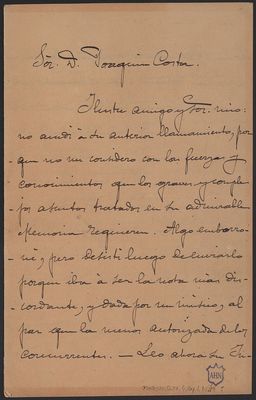 Sór. D. Joaquin Costa.
Ilustre amigo y Sor. mio:
no acudí à su anterior llamamiento, por
- que no me considero con las fuerzas y
- conocimientos que los graves y comple
- jos asuntos tratados en su admirable
- Memoria requieren. Algo emborro-
- né, pero desistí luego de enviarlo
porque iba à ser la nota más dis-
cordante, y dada por un músico, al
par que la menos autorizada de los
concurrentes. — Leo ahora su In-
AHN